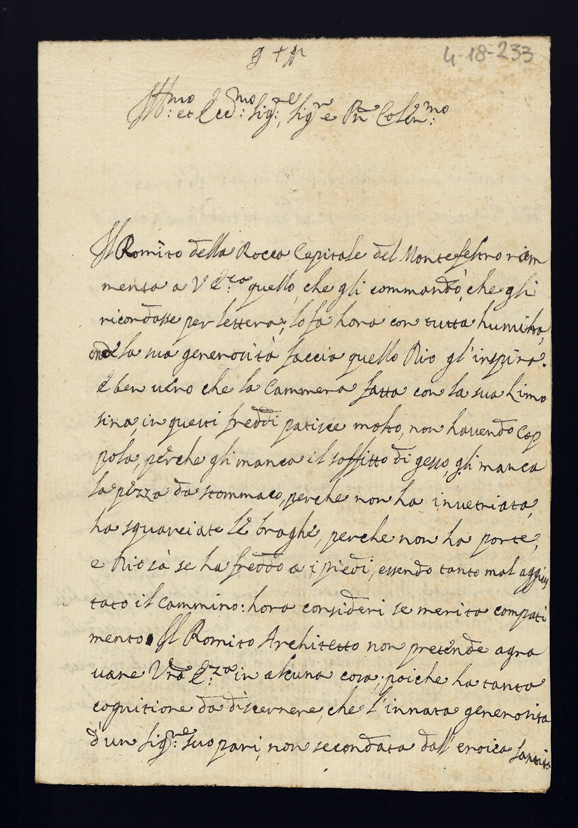 4-18-233
Ill:mo et Ecc:mo Sig:re, Sig:r e Pñ Colen:mo
Il Romito della Rocca Capitale del Montefeltro ram
menta a V Ec:za quello, che gli commandò, che gli
ricordasse per lettera; lo fa hora con tutta humiltà,
onde la sua generosità faccia quello Dio gl'inspira.
È ben vero che la Cammera fatta con la sua limo
sina in questi freddi patisce molto, non havendo Cap
pola, perche gli manca il soffitto di gesso, gli manca
la pezza da stommaco, perche non ha invetriata,
ha squarciate le braghe, perche non ha porte,
e Dio sà se ha freddo a i piedi, essendo tanto mal aggius
tato il Cammino: hora consideri se merita compati
mento. Il Romito Architetto non pretende agra
uare V̄ra Ec:za in alcuna cosa; poiche ha tanta
cognitione da discernere, che l'innata generosità
d'un Sig:re suo pari, non secondata dall'eroica